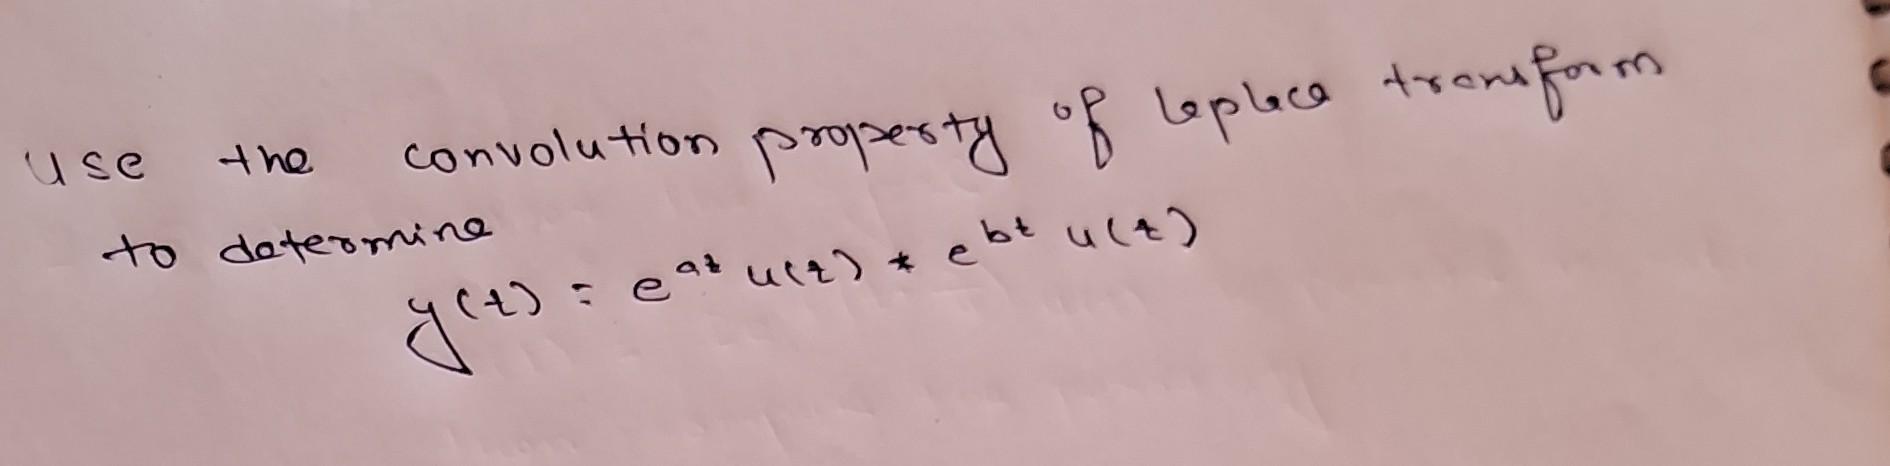 Use the convolution property of laplace transform
to determine
y(t) = e^{at} u(t) * e^{bt} u(t)